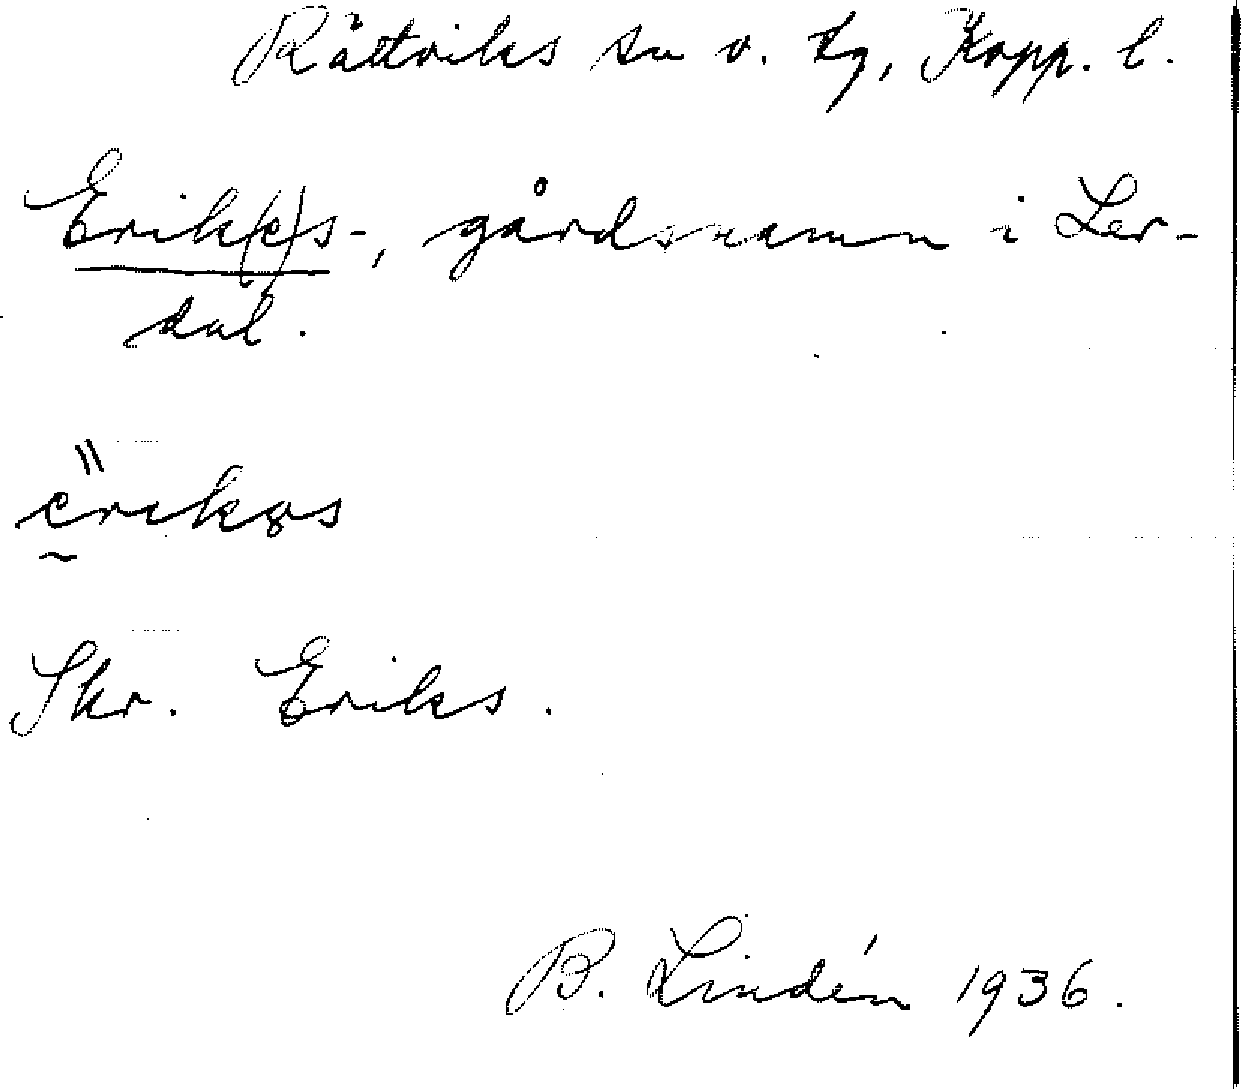 Rättviks sn o. tg, Kopp. l.
Erik(e)s-, gårdsnamn i Ler-
dal.
Skr. Eriks.
B. Lindén 1936.